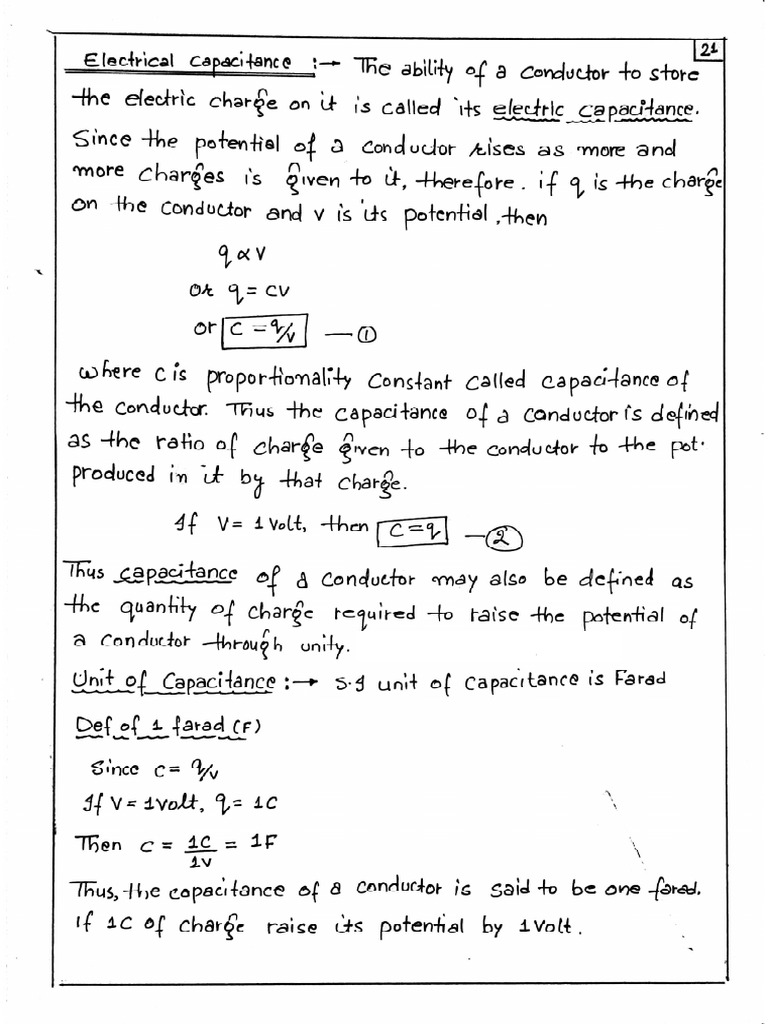 21
Electrical Capacitance :→ The ability of a conductor to store
the electric charge on it is called its electric capacitance.
Since the potential of a conductor rises as more and
more charges is given to it, therefore. if q is the charge
on the conductor and v is its potential, then
q ∝ V
or q = CV
or C = q/v — ①
where C is proportionality constant called capacitance of
the conductor. Thus the capacitance of a conductor is defined
as the ratio of charge given to the conductor to the pot.
produced in it by that charge.
If V = 1 Volt, then C = q — ②
Thus capacitance of a conductor may also be defined as
the quantity of charge required to raise the potential of
a conductor through unity.
Unit of Capacitance :→ S.I unit of capacitance is Farad
Def of 1 farad (F)
Since C = q/v
If V = 1Volt, q = 1C
Then C = 1C/1V = 1F
Thus, the capacitance of a conductor is said to be one farad.
If 1C of charge raise its potential by 1Volt.